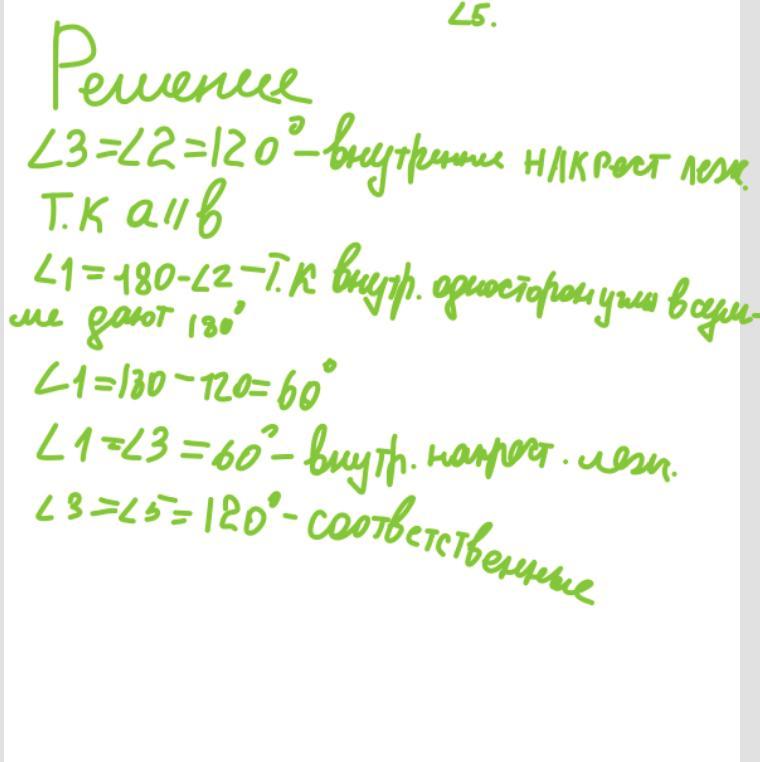 ∠5.
Решение
∠3=∠2=120° – внутренние н/крест леж.
Т.к a∥в
∠1=180-∠2 – Т.к внутр. односторон угла в сум-
ме дают 180°
∠1=180-120=60°
∠1=∠3=60° – внутр. накрест. леж.
∠3=∠5=120° – соответственные